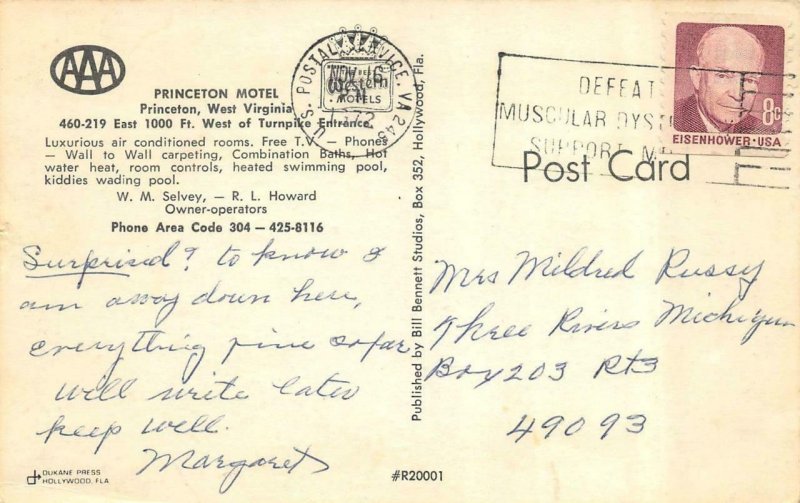 AAA
PRINCETON MOTEL
Princeton, West Virginia
460-219 East 1000 Ft. West of Turnpike Entrance.
Luxurious air conditioned rooms. Free T.V. — Phones
— Wall to Wall carpeting, Combination Baths, Hot
water heat, room controls, heated swimming pool,
kiddies wading pool.
W. M. Selvey, — R. L. Howard
Owner-operators
Phone Area Code 304 — 425-8116
Surprised? to know I
am away down here,
everything fine so far
will write later
keep well.
Margaret
DUKANE PRESS
HOLLYWOOD, FLA
#R20001
Published by Bill Bennett Studios, Box 352, Hollywood, Fla.
U.S. POSTAL SERVICE, VA 243
NOV 16
PM
1972
Western
MOTELS
DEFEAT
MUSCULAR DYST
SUPPORT
8c
EISENHOWER·USA
Post Card
Mrs Mildred Russy
Three Rivers Michigan
Box 203 Rt 3
49093